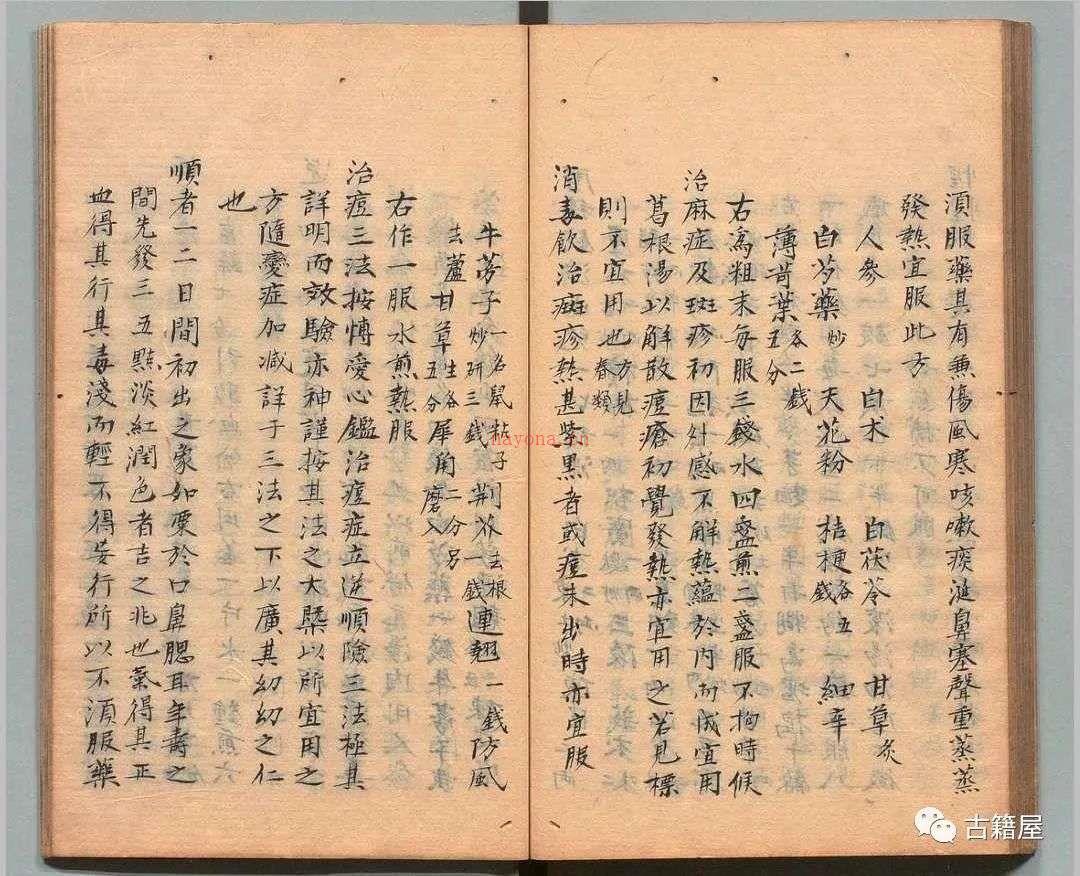 湏服藥其有兼傷風寒咳嗽痰涎鼻塞聲重蒸蒸
發熱宜服此方
人參 白术 白茯苓 甘草炙
白芍藥炒 天花粉二 桔梗各五錢 細辛
薄荷葉各二錢五分
右為粗末每服三錢水四盞煎二盞服不拘時候
治麻症及斑疹初因外感不解熱蘊於內而成宜用
葛根湯以解散痘瘡初覺發熱亦宜用之若見標
則不宜用也方見春類
消毒飲治斑疹熱甚紫黑者或痘未出時亦宜服
牛蒡子一名鼠粘子炒研三錢 荆芥去根一錢 連翹一錢 防風
去蘆 甘草生各五分 犀角二分另磨入
右作一服水煎熱服
治痘三法按博愛心鑑治痘症立逆順險三法極其
詳明而效驗亦神謹按其法之大槩以所宜用之
方隨變症加减詳于三法之下以廣其幼幼之仁
也
順者一二日間初出之象如粟於口鼻腮耳年壽之
間先發三五㸃淡紅潤色者吉之兆也氣得其正
血得其行其毒淺而輕不得妄行所以不湏服藥
nayona.cn
古籍屋